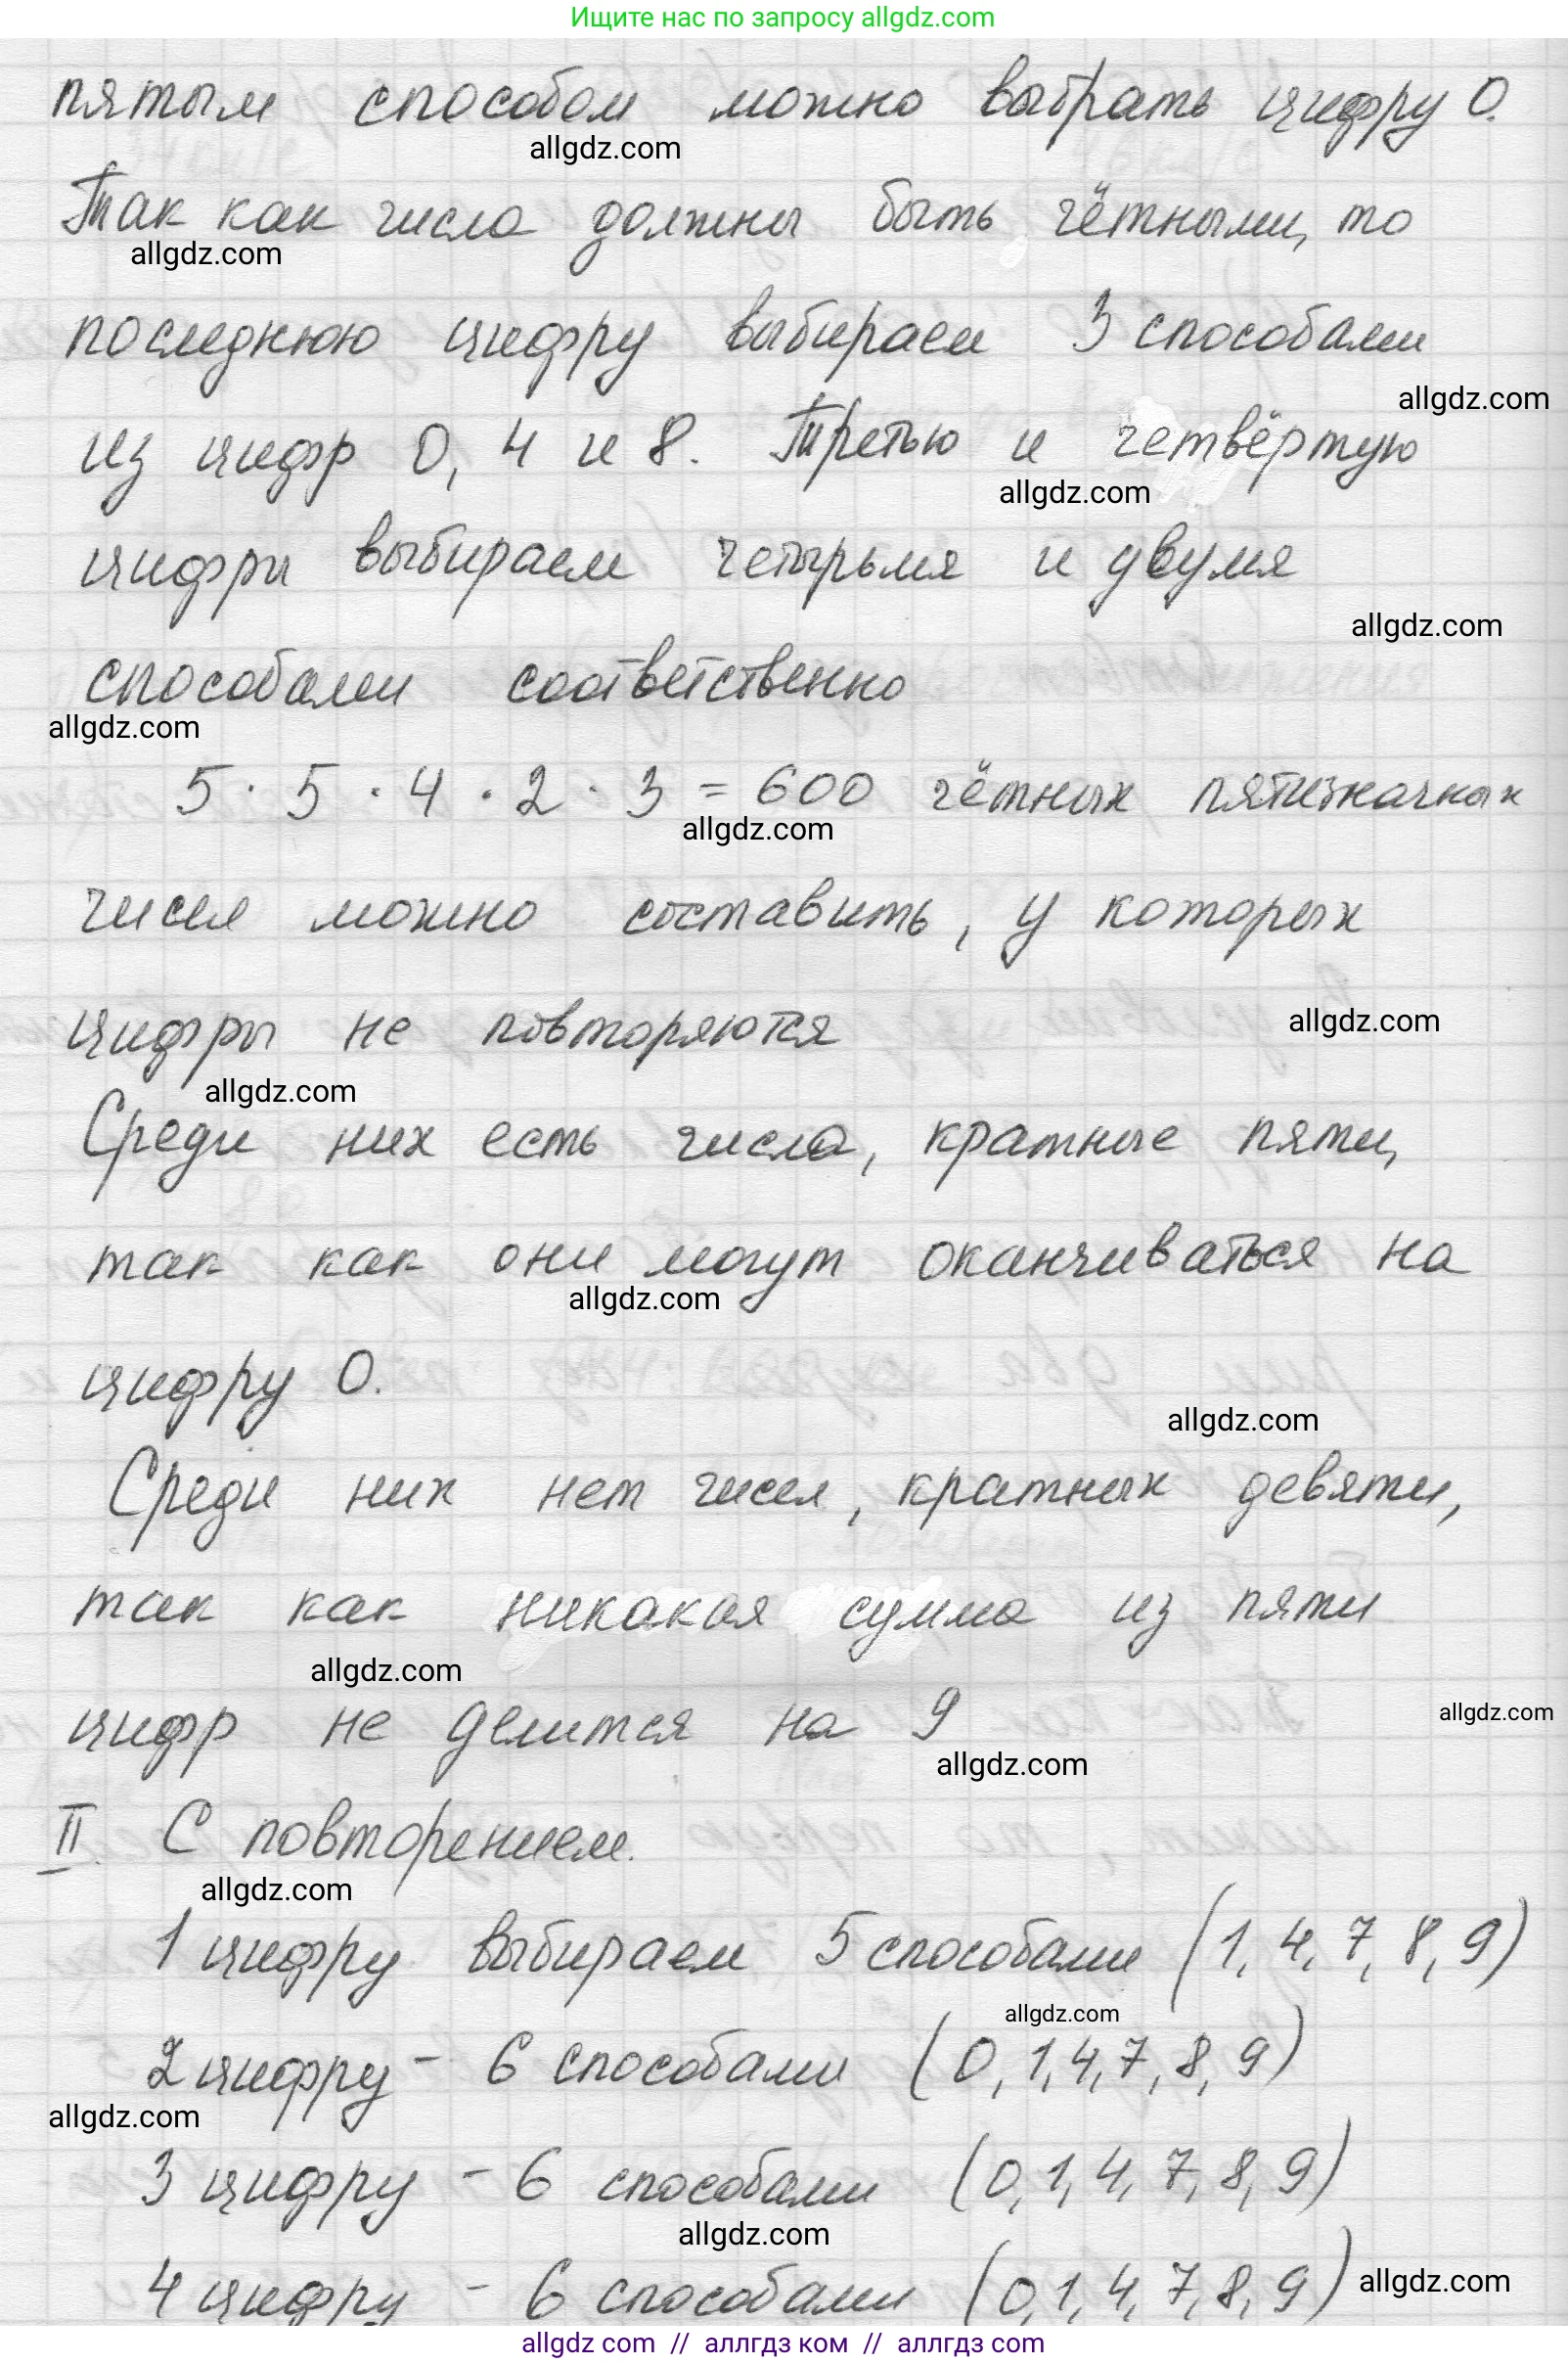 Ищите нас по запросу allgdz.com
пятым способом можно выбрать цифру 0.
allgdz.com
Так как числа должны быть чётными, то
allgdz.com
последнюю цифру выбираем 3 способами
allgdz.com
из цифр 0, 4 и 8. Третью и четвёртую
allgdz.com
цифры выбираем четырьмя и двумя
allgdz.com
способами соответственно
allgdz.com
5 · 5 · 4 · 2 · 3 = 600 чётных пятизначных
allgdz.com
чисел можно составить, у которых
цифры не повторяются
allgdz.com
allgdz.com
Среди них есть числа, кратные пяти,
так как они могут оканчиваться на
allgdz.com
цифру 0.
allgdz.com
Среди них нет чисел, кратных девяти,
так как никакая сумма из пяти
allgdz.com
цифр не делится на 9
allgdz.com
allgdz.com
II. С повторением.
allgdz.com
1 цифру выбираем 5 способами (1, 4, 7, 8, 9)
allgdz.com
2 цифру - 6 способами (0, 1, 4, 7, 8, 9)
allgdz.com
3 цифру - 6 способами (0, 1, 4, 7, 8, 9)
allgdz.com
4 цифру - 6 способами (0, 1, 4, 7, 8, 9)
allgdz.com
allgdz.com // аллгдз ком // allgdz.com